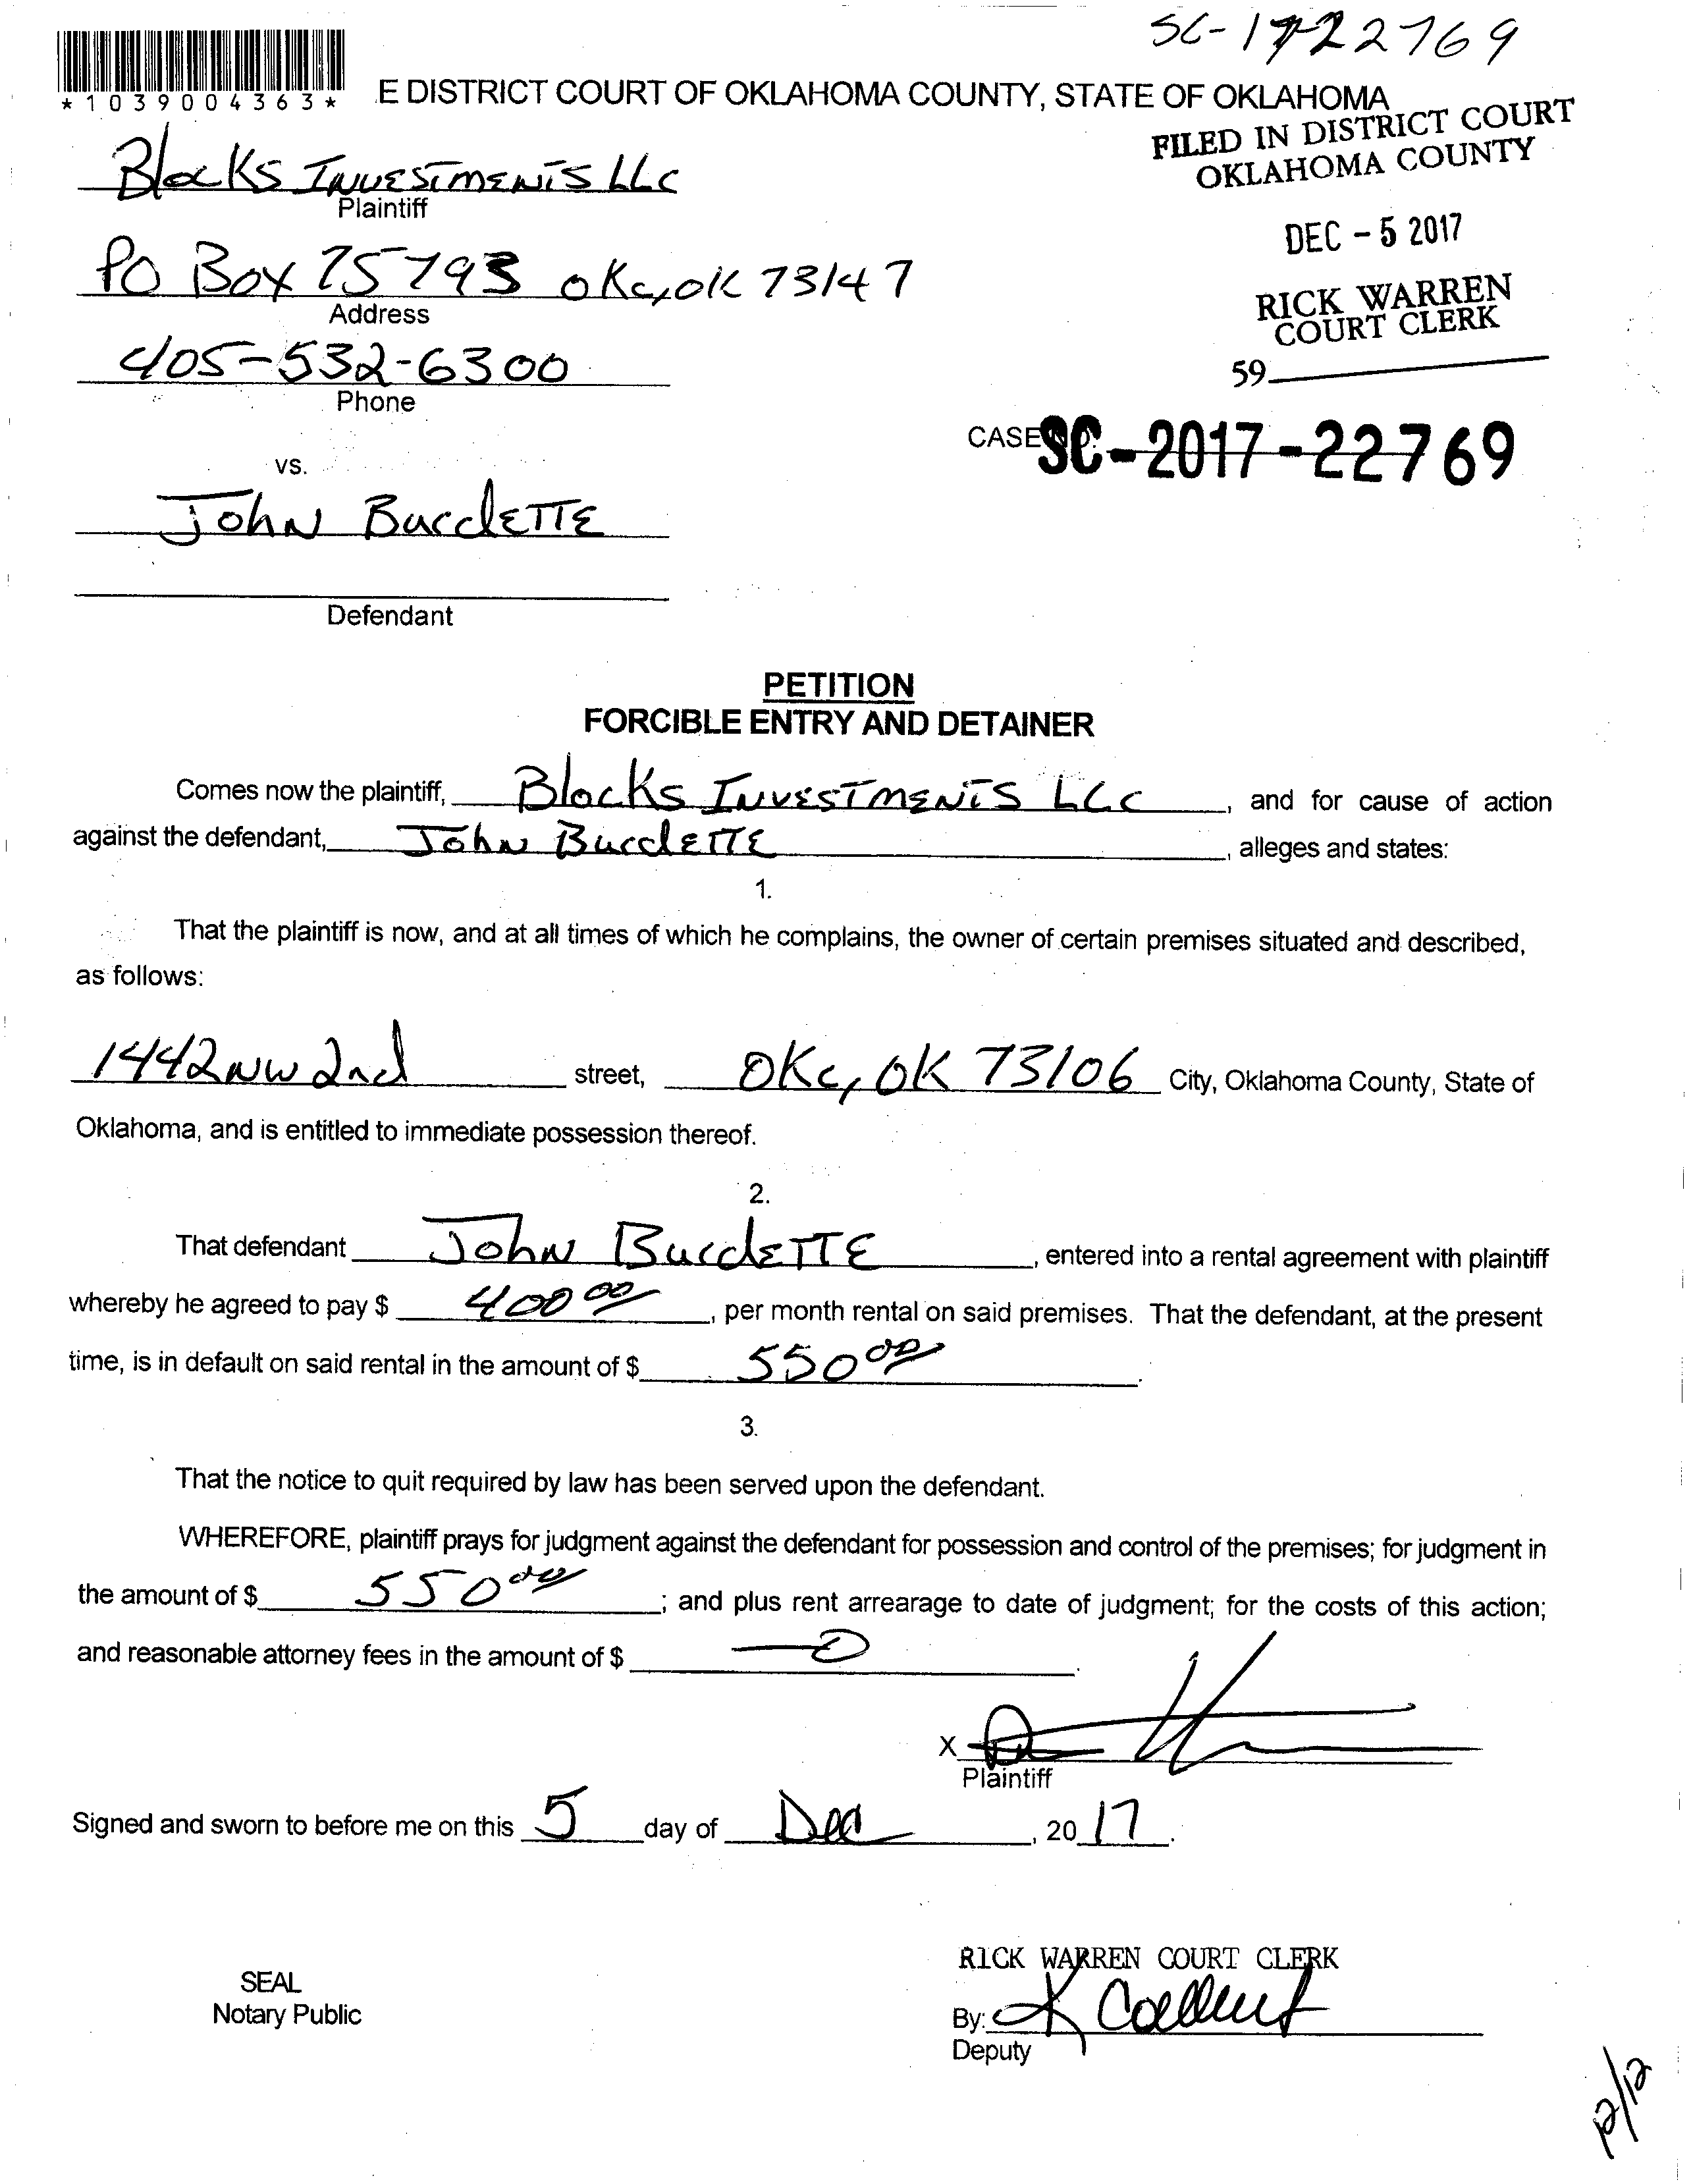 SC-1722769
*1039004363*
E DISTRICT COURT OF OKLAHOMA COUNTY, STATE OF OKLAHOMA
FILED IN DISTRICT COURT
OKLAHOMA COUNTY
Blocks Investments LLC
Plaintiff
DEC - 5 2017
PO Box 75793 OKC, OK 73147
Address
RICK WARREN
COURT CLERK
405-532-6300
59
Phone
CASE SC-2017-22769
vs.
John Burdette
Defendant
PETITION
FORCIBLE ENTRY AND DETAINER
Comes now the plaintiff, Blocks Investments LLC, and for cause of action
against the defendant, John Burdette, alleges and states:
1.
That the plaintiff is now, and at all times of which he complains, the owner of certain premises situated and described,
as follows:
1442 NW 2nd street, OKC, OK 73106 City, Oklahoma County, State of
Oklahoma, and is entitled to immediate possession thereof.
2.
That defendant John Burdette, entered into a rental agreement with plaintiff
whereby he agreed to pay $ 400 00, per month rental on said premises. That the defendant, at the present
time, is in default on said rental in the amount of $ 550 00.
3.
That the notice to quit required by law has been served upon the defendant.
WHEREFORE, plaintiff prays for judgment against the defendant for possession and control of the premises; for judgment in
the amount of $ 550 00; and plus rent arrearage to date of judgment; for the costs of this action;
and reasonable attorney fees in the amount of $ —0.
X
Plaintiff
Signed and sworn to before me on this 5 day of Dec, 2017.
RICK WARREN COURT CLERK
SEAL
Notary Public
By: K
Deputy
12/12